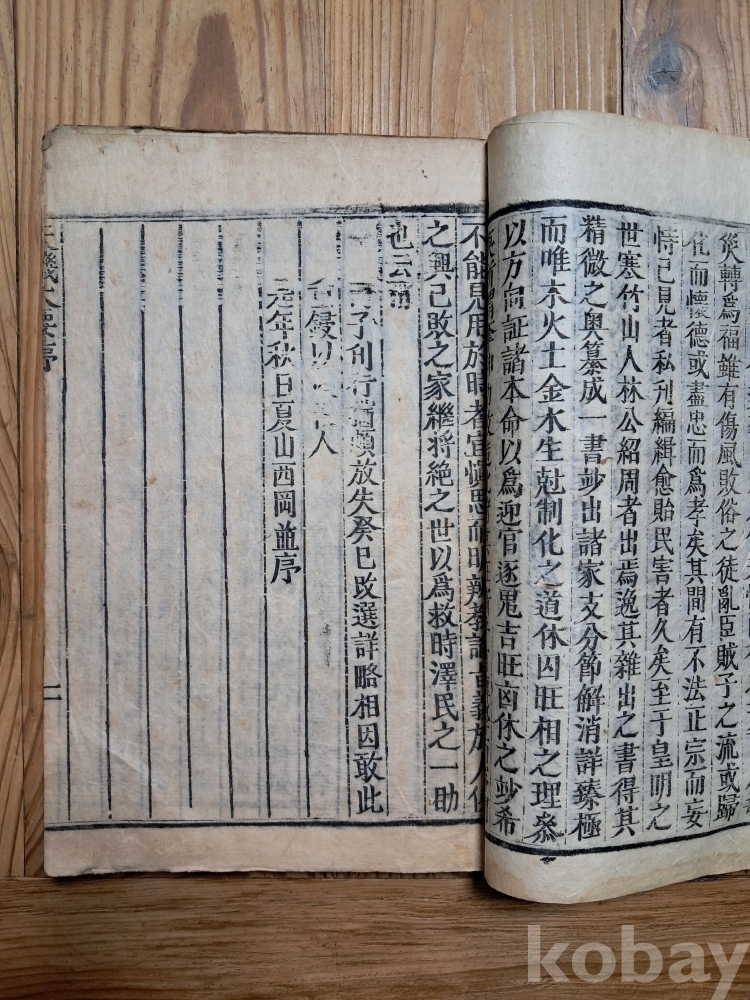 災轉爲福雖有傷風敗俗之徒亂臣賊子之流或歸
化而懷德或盡忠而爲孝矣其間有不法正宗而妄
恃已見者私刊編緝愈貽民害者久矣至于皇明之
世寒竹山人林公紹周者出焉逸其雜出之書得其
精微之奧纂成一書妙出諸家支分節解消詳臻極
而唯木火土金水生尅制化之道休囚旺相之理叅
以方向証諸本命以爲迎官逐鬼吉旺凶休之妙希
不能思用於時者宜愼思而明辨
之興已敗之家繼將絶之世以爲救時澤民之一助
也云爾
子刊行 放失癸巳改選詳略相因敢此
人
元年秋日夏山西岡並序
天機大要序
二
kobay